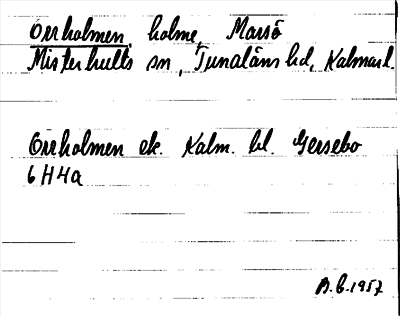 Orrholmen, holme, Marsö
Misterhults sn, Tunaläns hd, Kalmar l.
Orrholmen ek. Kalm. bl. Gersebo
6H4a
B.C. 1957